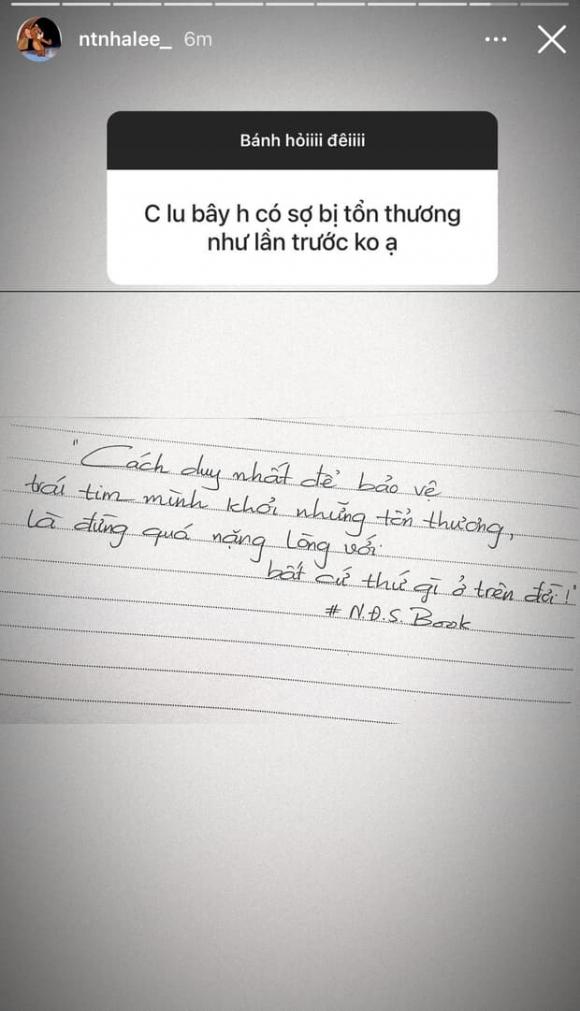 ntnhalee_ 6m
Bánh hỏiiii đêiiii
C lu bây h có sợ bị tổn thương
như lần trước ko ạ
"Cách duy nhất để bảo vệ
trái tim mình khỏi những tổn thương,
là đừng quá nặng lòng với
bất cứ thứ gì ở trên đời!"
# N.Đ.S. Book